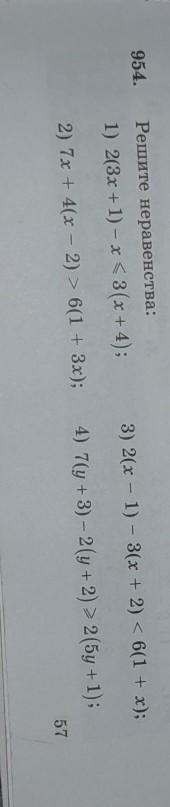 954. Решите неравенства:
1) 2(3x + 1) − x ⩽ 3(x + 4);
3) 2(x − 1) − 3(x + 2) < 6(1 + x);
2) 7x + 4(x − 2) > 6(1 + 3x);
4) 7(y + 3) − 2(y + 2) ⩾ 2(5y + 1);
57